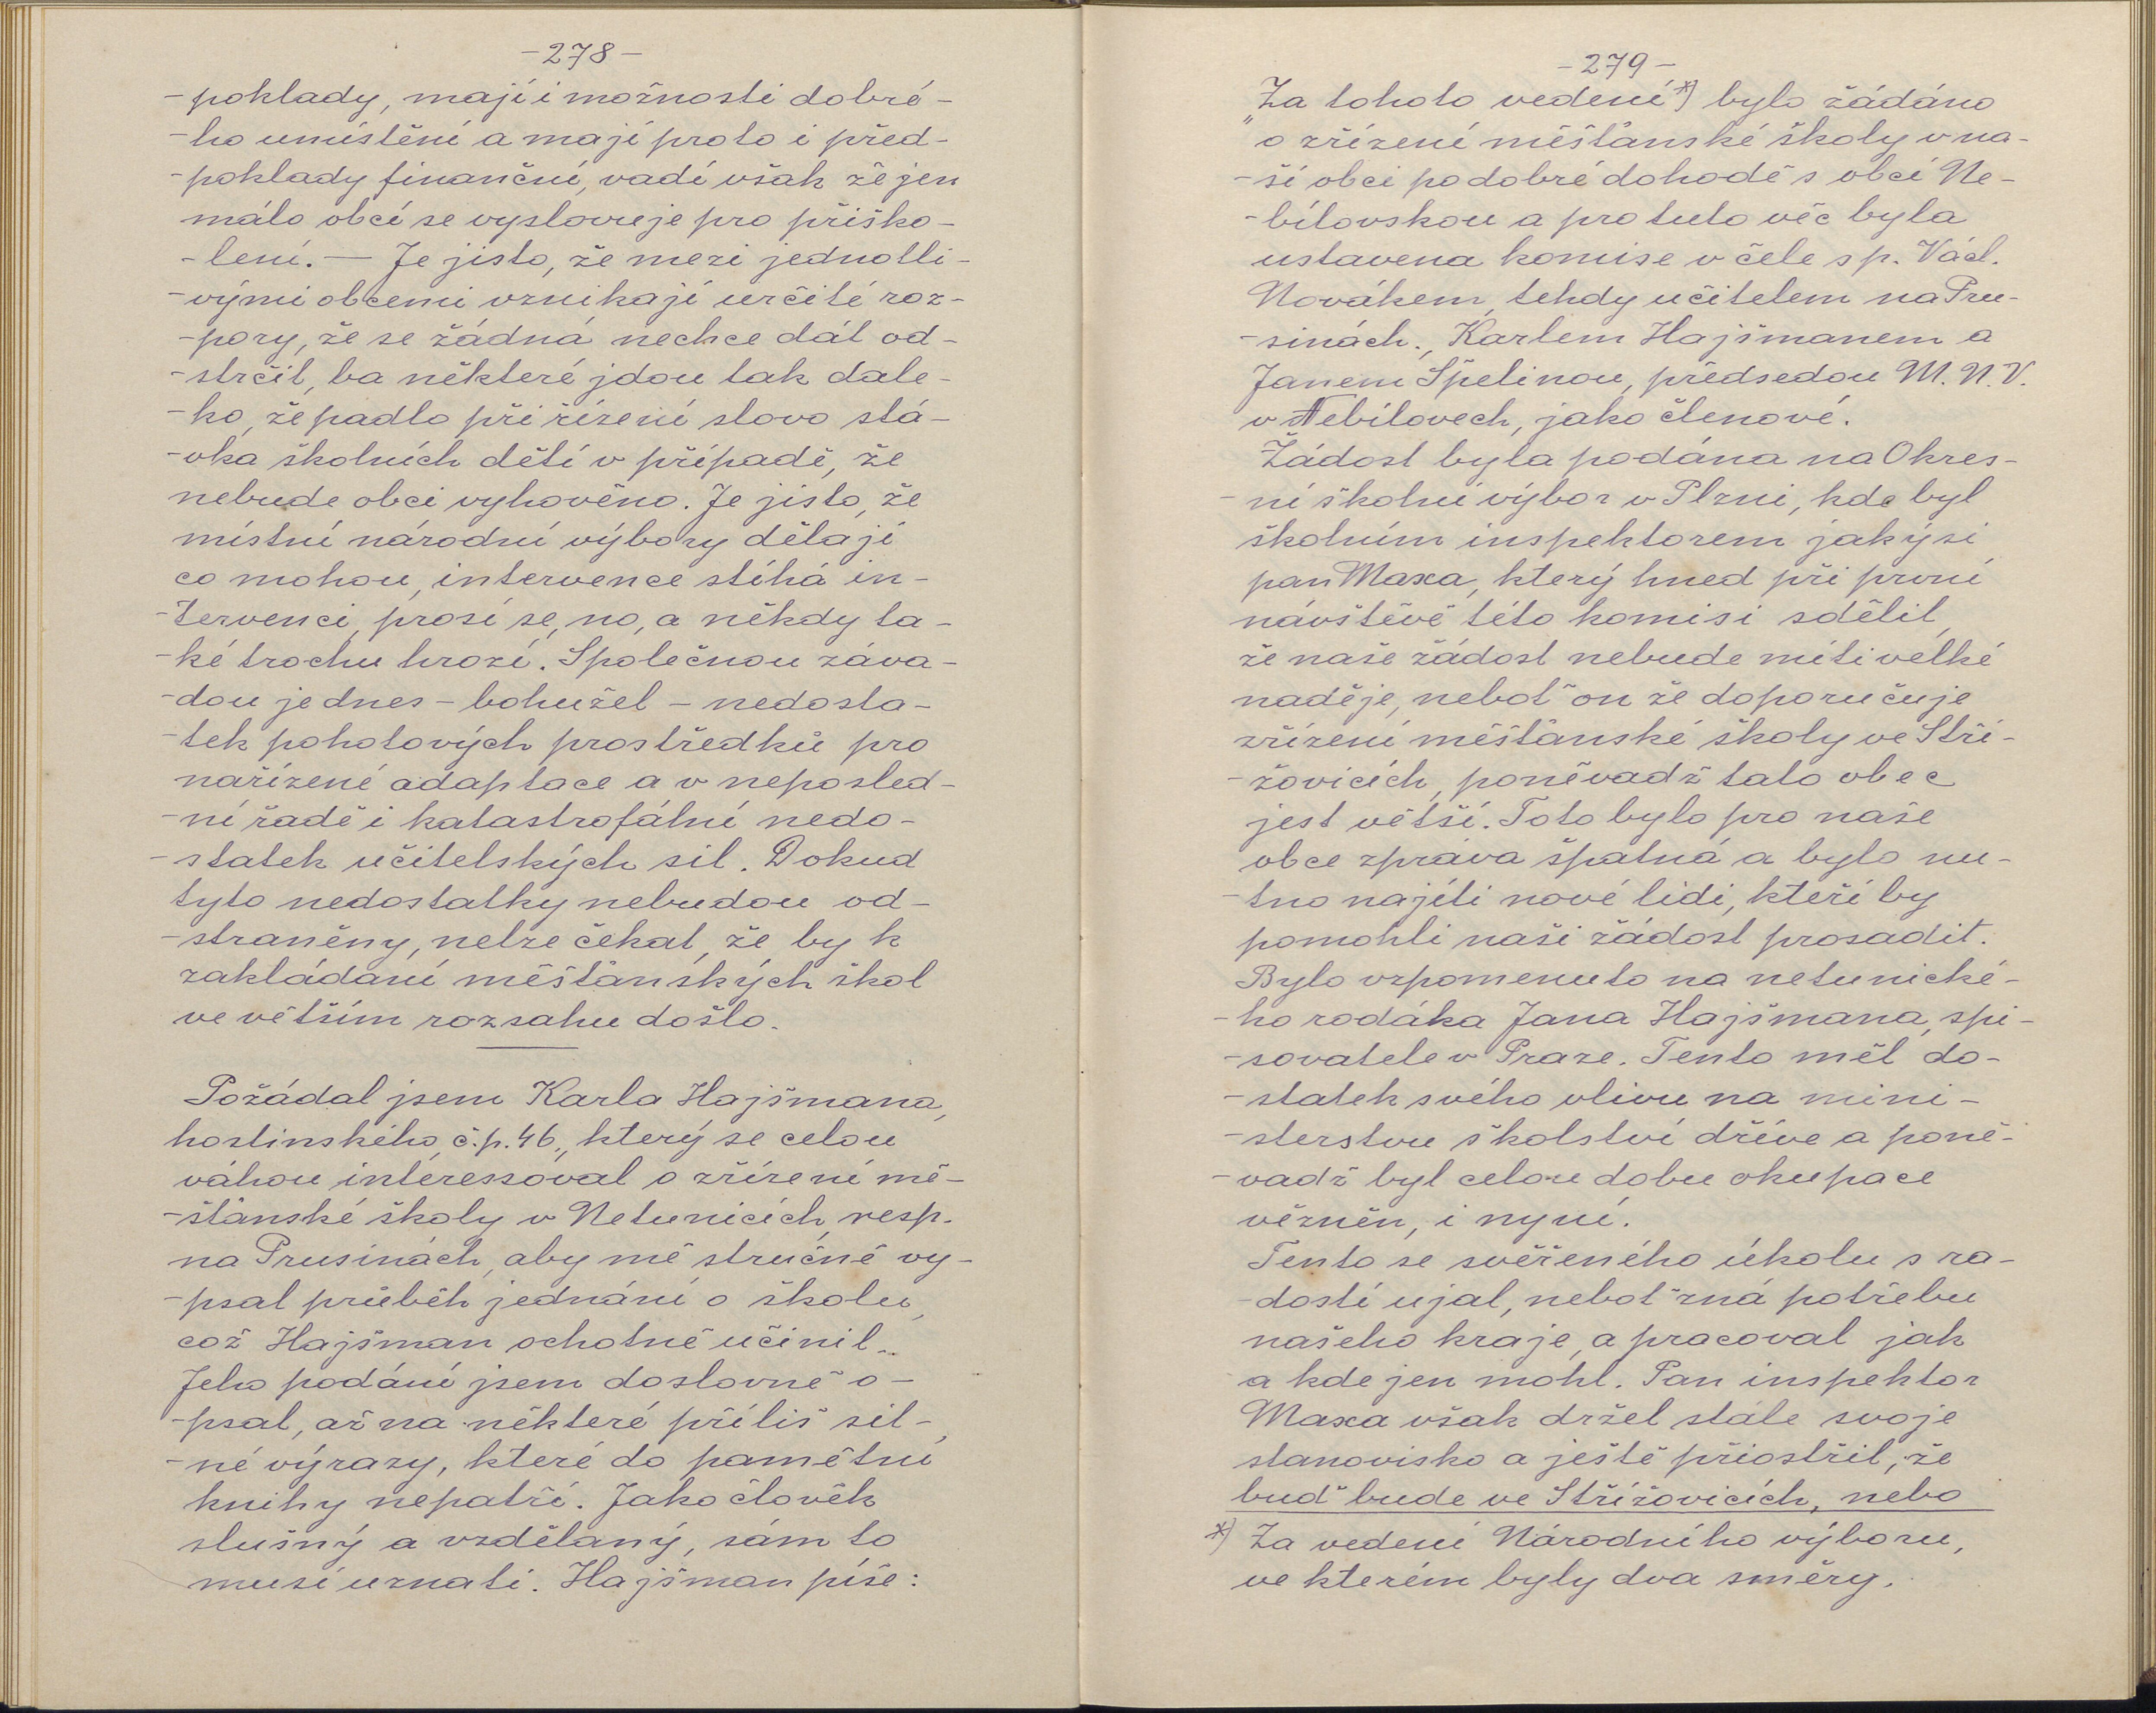 -278-
-poklady, mají i možnosti dobré-
-ho umístění a mají proto i před-
-poklady finanční, vadí však že jen
málo obcí se vyslovuje pro přiško-
-lení. — Je jisto, že mezi jednotli-
-vými obcemi vznikají určité roz-
-pory, že se žádná nechce dát od-
-strčit, ba některé jdou tak dale-
-ko, že padlo při řízení slovo stá-
-vka školních dětí v případě, že
nebude obci vyhověno. Je jisto, že
místní národní výbory dělají
co mohou, intervence stíhá in-
-tervenci, prosí se, no, a někdy ta-
-ké trochu hrozí. Společnou záva-
-dou je dnes - bohužel - nedosta-
-tek pohotových prostředků pro
nařízené adaptace a v neposled-
-ní řadě i katastrofální nedo-
-statek učitelských sil. Dokud
tyto nedostatky nebudou od-
-straněny, nelze čekat, že by k
zakládání měšťanských škol
ve větším rozsahu došlo.
Požádal jsem Karla Hajšmana,
hostinského, č.p. 46., který se celou
váhou interessoval o zřízení mě-
-šťanské školy v Netunicích, resp.
na Prusinách, aby mě stručně vy-
-psal průběh jednání o školu,
což Hajšman ochotně učinil.
Jeho podání jsem doslovně o-
-psal, až na některé příliš sil-
-né výrazy, které do pamětní
knihy nepatří. Jako člověk
slušný a vzdělaný, sám to
musí uznati. Hajšman píše:
-279-
„Za tohoto vedení*) bylo žádáno
o zřízení měšťanské školy v na-
-ší obci po dobré dohodě s obcí Ne-
-bílovskou a pro tuto věc byla
ustavena komise v čele s p. Václ.
Novákem, tehdy učitelem na Pru-
-sinách., Karlem Hajšmanem a
Janem Špelinou, předsedou M.N.V.
v Nebílovech, jako členové.
Žádost byla podána na Okres-
-ní školní výbor v Plzni, kde byl
školním inspektorem jakýsi
pan Maxa, který hned při první
návštěvě této komisi sdělil,
že naše žádost nebude míti velké
naděje, neboť on že doporučuje
zřízení měšťanské školy ve Stří-
-žovicích, poněvadž tato obec
jest větší. Toto bylo pro naše
obce zpráva špatná a bylo nu-
-tno najíti nové lidi, kteří by
pomohli naši žádost prosadit.
Bylo vzpomenuto na netunické-
-ho rodáka Jana Hajšmana, spi-
-sovatele v Praze. Tento měl do-
-statek svého vlivu na mini-
-sterstvu školství dříve a poně-
-vadž byl celou dobu okupace
vězněn, i nyní.
Tento se svěřeného úkolu s ra-
-dostí ujal, neboť zná potřebu
našeho kraje, a pracoval jak
a kde jen mohl. Pan inspektor
Maxa však držel stále svoje
stanovisko a ještě přiostřil, že
buď bude ve Střížovicích, nebo
*) Za vedení Národního výboru,
ve kterém byly dva směry.